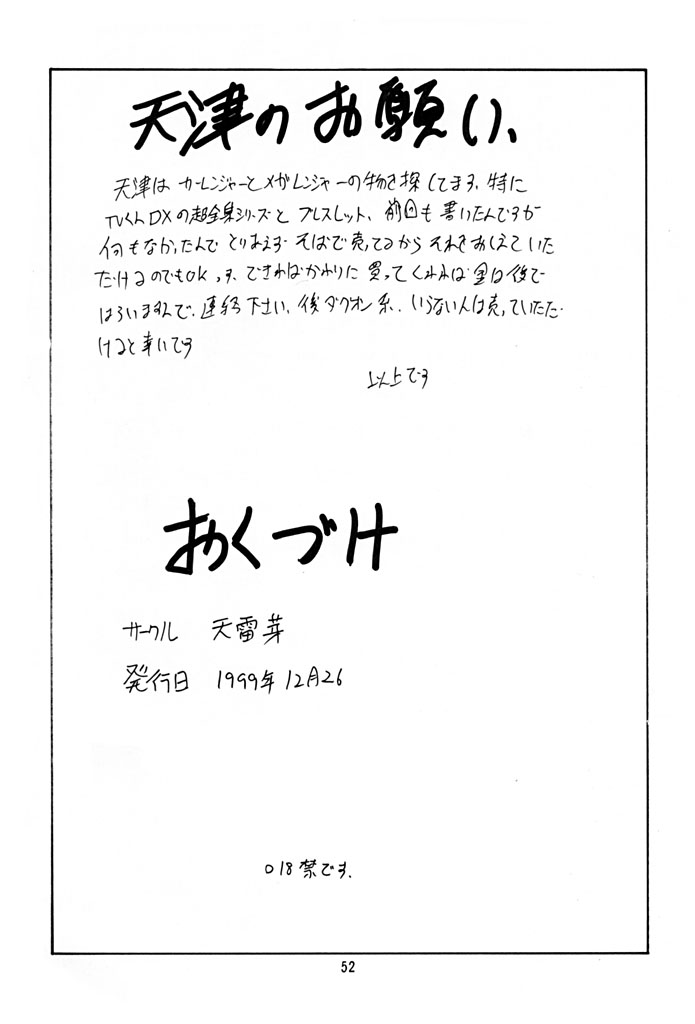 天津のお願い、
天津は カーレンジャーとメガレンジャーの物を探してます、特に
TVくんDXの超全集シリーズと ブレスレット、前回も書いたんですが
何もなかったんで とりあえず そばで売ってるから それをおしえていた
だけるのでもOKっす、できればかわりに 買ってくれれば金は後で
はらいますんで、連絡下さい、後ダグオン系、いらない人は売っていただ
けると幸いです
以上です
おくづけ
サークル 天雷芽
発行日 1999年12月26
○18禁です、
52